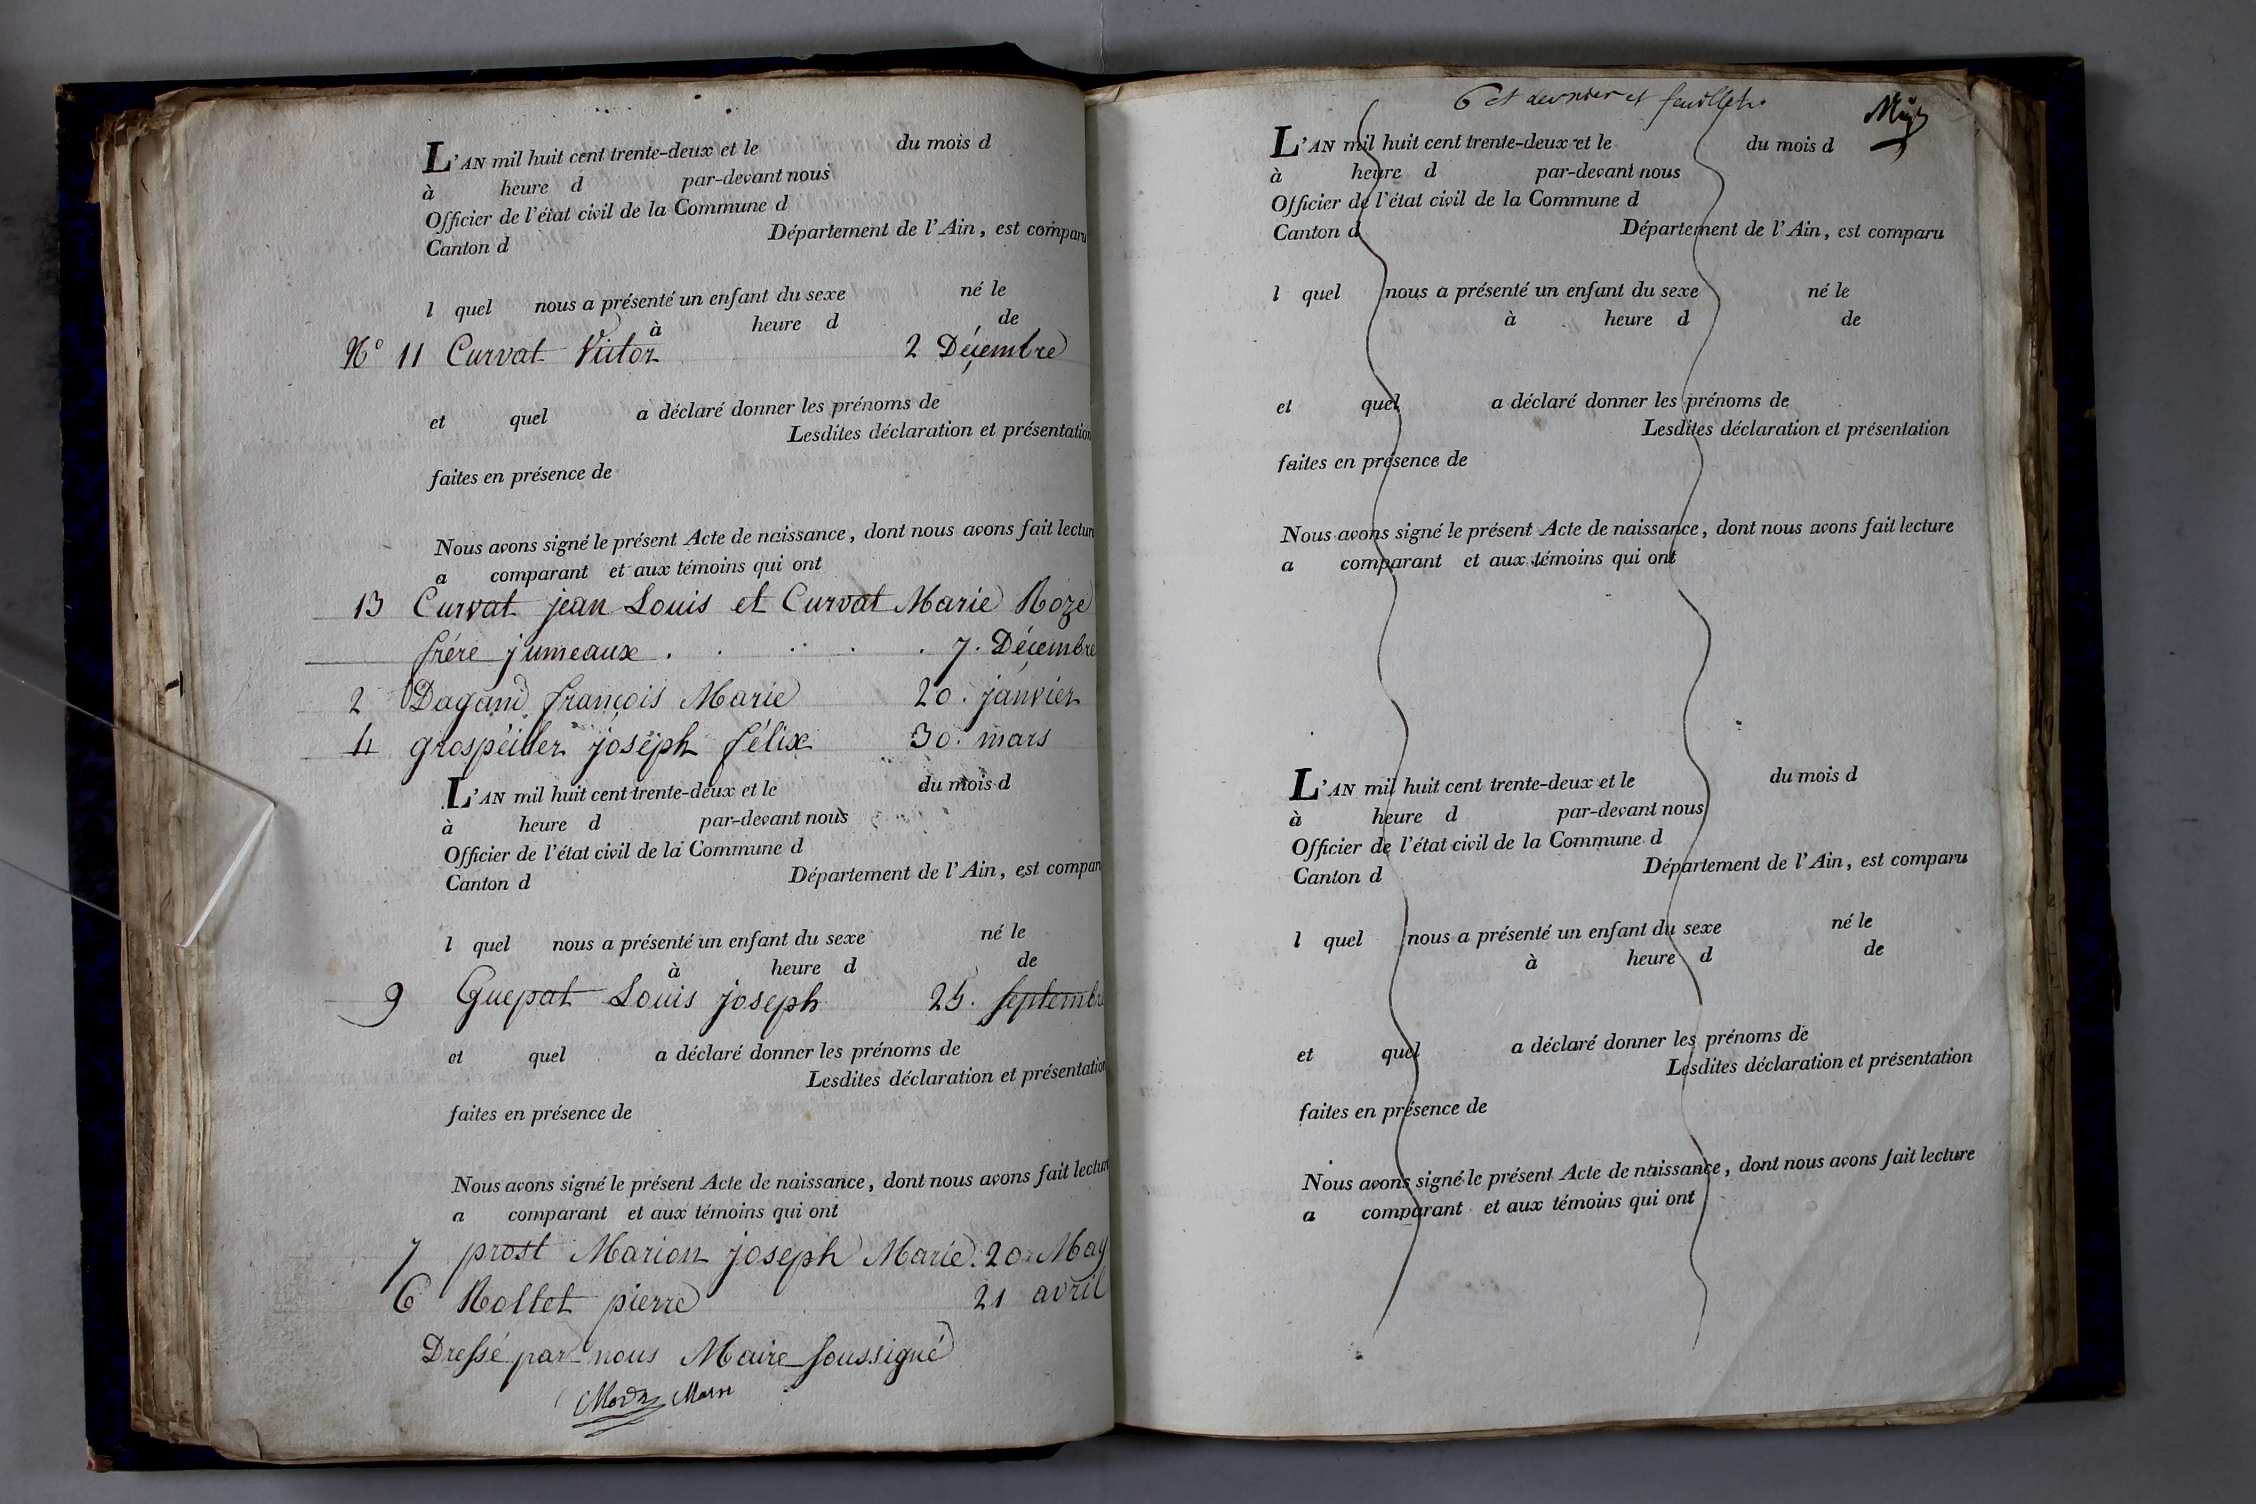 L'AN mil huit cent trente-deux et le du mois d
à heure d par-devant nous
Officier de l'état civil de la Commune d
Canton d Département de l'Ain, est comparu
l quel nous a présenté un enfant du sexe né le
à heure d de
N° 11 Curvat Victor 2 Décembre
et quel a déclaré donner les prénoms de
Lesdites déclaration et présentation
faites en présence de
Nous avons signé le présent Acte de naissance, dont nous avons fait lectur
a comparant et aux témoins qui ont
13 Curvat jean Louis et Curvat Marie Roze
frére jumeaux . . . . . 7. Décembre
2 Dagand françois Marie 20. janvier
4 grospéiller joséph félix 30. mars
L'AN mil huit cent trente-deux et le du mois d
à heure d par-devant nous
Officier de l'état civil de la Commune d
Canton d Département de l'Ain, est compar
l quel nous a présenté un enfant du sexe né le
à heure d de
9 Guepat Louis joseph 25. septembre
et quel a déclaré donner les prénoms de
Lesdites déclaration et présentation
faites en présence de
Nous avons signé le présent Acte de naissance, dont nous avons fait lecture
a comparant et aux témoins qui ont
7 prost Marion joseph Marie. 20. May
6 Rollet pierre 21 avril
Dressé par nous Maire soussigné
6 et dernier et feuillet.
L'AN mil huit cent trente-deux et le du mois d
à heure d par-devant nous
Officier de l'état civil de la Commune d
Canton d Département de l'Ain, est comparu
l quel nous a présenté un enfant du sexe né le
à heure d de
et quel a déclaré donner les prénoms de
Lesdites déclaration et présentation
faites en présence de
Nous avons signé le présent Acte de naissance, dont nous avons fait lecture
a comparant et aux témoins qui ont
L'AN mil huit cent trente-deux et le du mois d
à heure d par-devant nous
Officier de l'état civil de la Commune d
Canton d Département de l'Ain, est comparu
l quel nous a présenté un enfant du sexe né le
à heure d de
et quel a déclaré donner les prénoms de
Lesdites déclaration et présentation
faites en présence de
Nous avons signé le présent Acte de naissance, dont nous avons fait lecture
a comparant et aux témoins qui ont